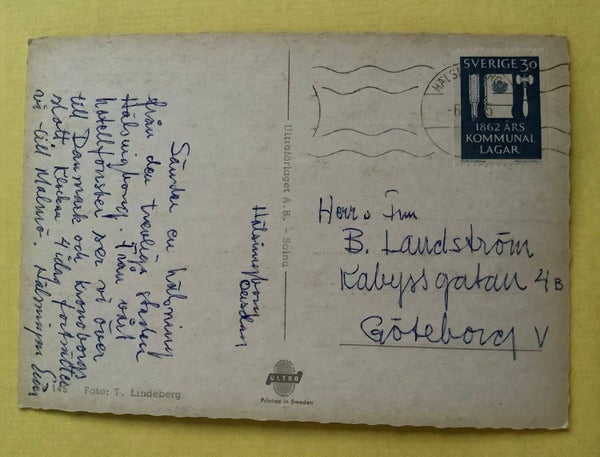 Hälsingborg
Onsdag
Sänder en hälsning
från den trevliga staden
Hälsingborg. Från vårt
hotellfönster ser vi över
till Danmark och Kronoborgs
slott. Klockan 4 idag fortsätter
vi till Malmö. Hälsningar
145 Foto: T. Lindeberg
Ultraförlaget A.B. - Solna
ULTRA
Printed in Sweden
HÄLSI
-6
SVERIGE 30
1862 ÅRS
KOMMUNAL
LAGAR
Herr o Fru
B. Landström
Kabyssgatan 4B
Göteborg V